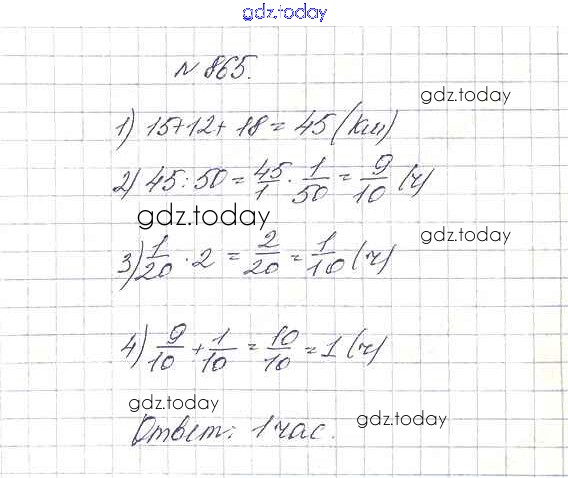 gdz.today
№ 865.
gdz.today
1) 15+12+18=45 (км)
2) 45:50 = 45/1 · 1/50 = 9/10 (ч)
gdz.today
gdz.today
3) 1/20 · 2 = 2/20 = 1/10 (ч)
4) 9/10 + 1/10 = 10/10 = 1 (ч)
gdz.today
gdz.today
Ответ: 1 час.